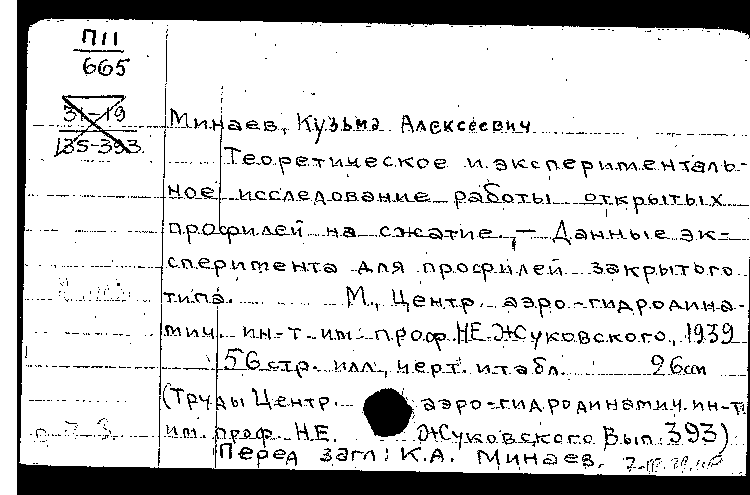 П11
665
31-19
135-393
Минаев, Кузьма Алексеевич
Теоретическое и эксперименталь-
ное исследование работы открытых
профилей на сжатие, — Данные эк-
сперимента для профилей закрытого
типа. М., Центр. аэро-гидродина-
мич. ин-т им. проф. Н.Е. Жуковского, 1939
56 стр. илл., черт. и табл. 26 см
(Труды Центр. аэро-гидродинамич. ин-та
им. проф. Н.Е. Жуковского Вып. 393)
Перед загл: К.А. Минаев.